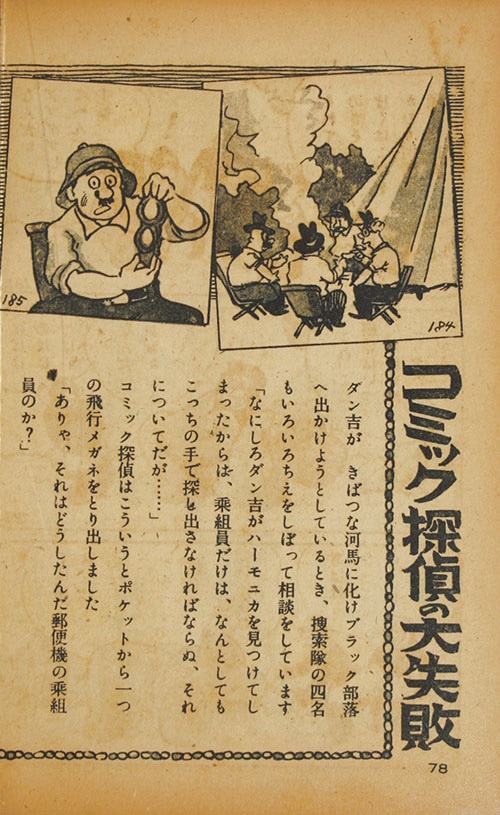 コミック探偵の大失敗
184
185
ダン吉が きばつな河馬に化けブラック部落
へ出かけようとしているとき、捜索隊の四名
もいろいろちえをしぼって相談をしています
「なにしろダン吉がハーモニカを見つけてし
まったからは、乗組員だけは、なんとしても
こっちの手で探し出さなければならぬ、それ
についてだが……」
コミック探偵はこういうとポケットから一つ
の飛行メガネをとり出しました
「ありゃ、それはどうしたんだ郵便機の乗組
員のか?」
78